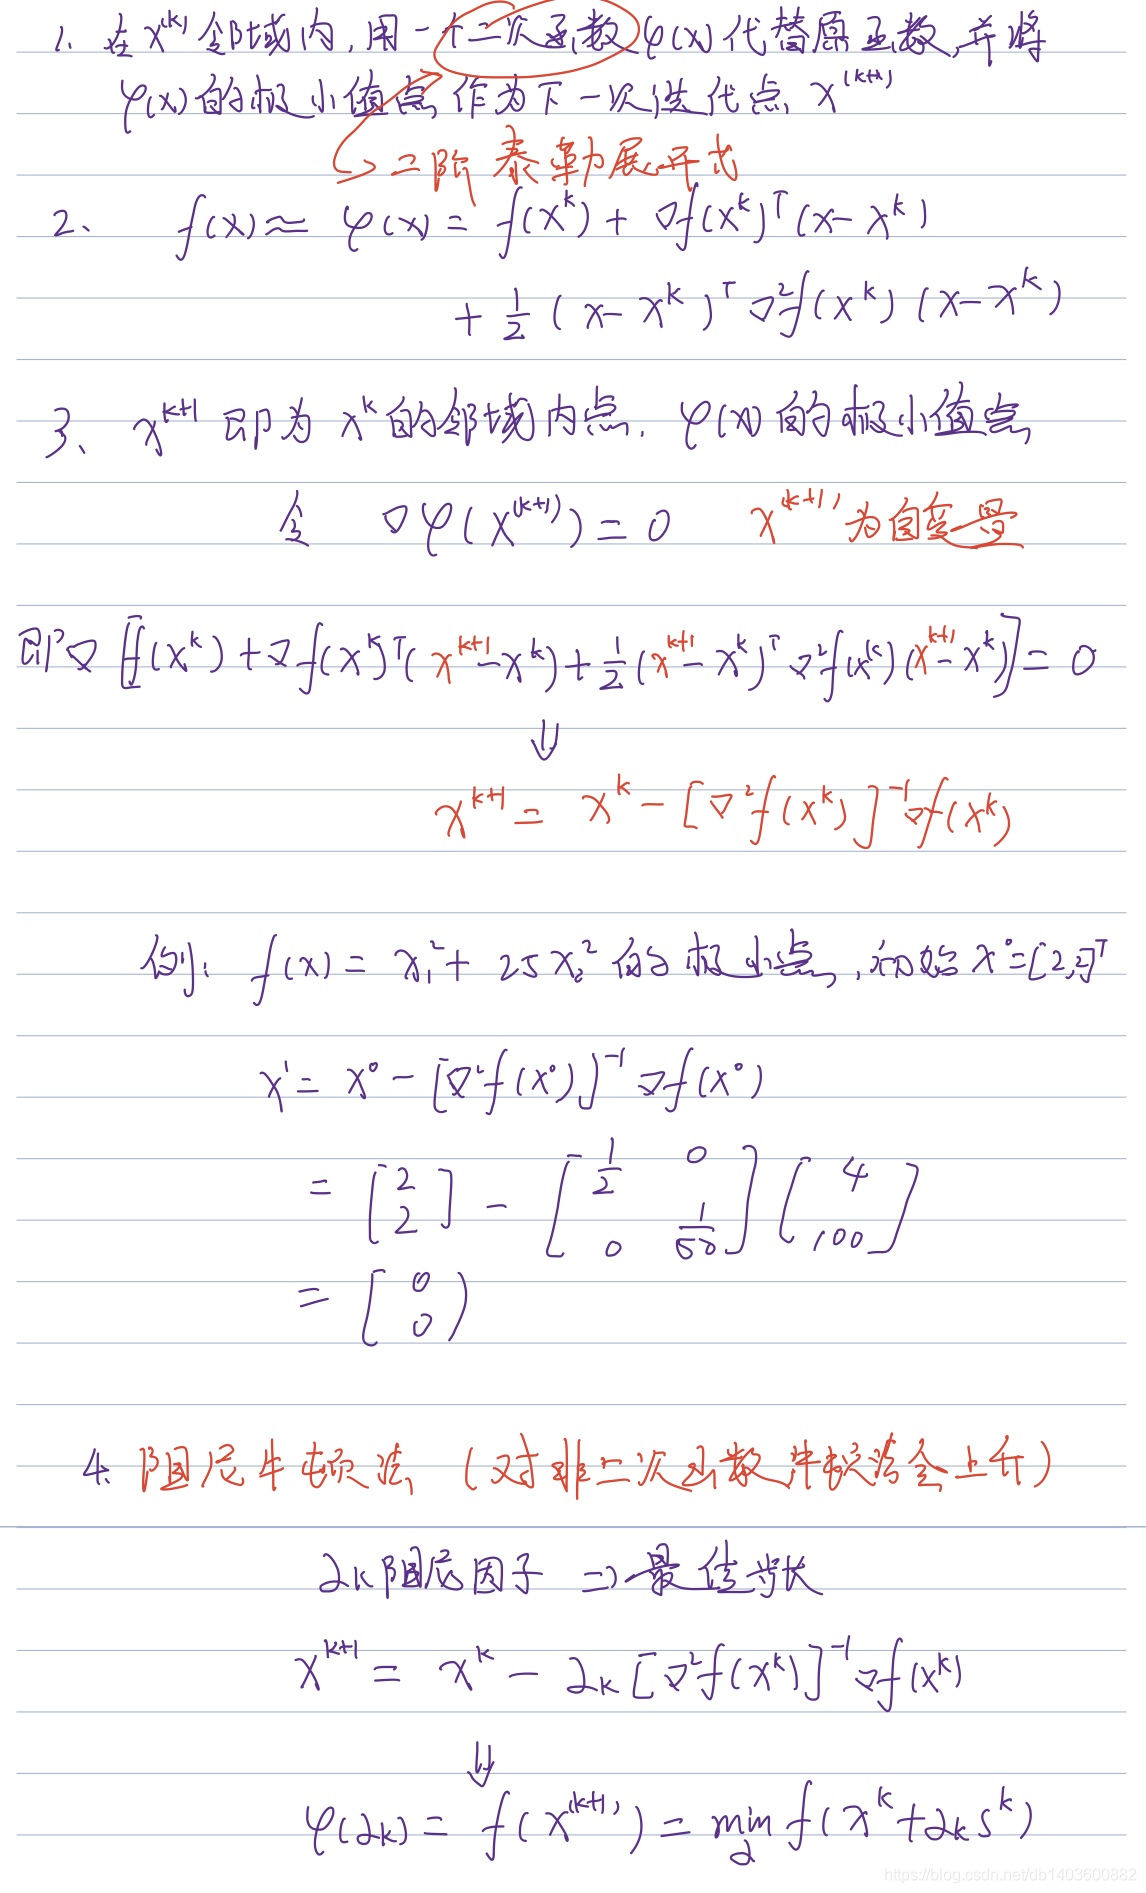 1. 在 x^(k) 邻域内,用一个二次函数 φ(x) 代替原函数,并将
φ(x) 的极小值点作为下一次迭代点 x^(k+1)
二阶泰勒展开式
2、 f(x) ≈ φ(x) = f(x^k) + ∇f(x^k)^T (x - x^k)
+ 1/2 (x - x^k)^T ∇²f(x^k) (x - x^k)
3、 x^{k+1} 即为 x^k 的邻域内点, φ(x) 的极小值点
令 ∇φ(x^(k+1)) = 0 x^(k+1) 为自变量
即 ∇[f(x^k) + ∇f(x^k)^T (x^{k+1} - x^k) + 1/2 (x^{k+1} - x^k)^T ∇²f(x^k) (x^{k+1} - x^k)] = 0
⇓
x^{k+1} = x^k - [∇²f(x^k)]^{-1} ∇f(x^k)
例: f(x) = x₁² + 25x₂² 的极小点,初始 x^0 = [2,2]^T
x^1 = x^0 - [∇²f(x^0)]^{-1} ∇f(x^0)
= [2 2] - [1/2 0 0 1/50] [4 100]
= [0 0]
4、 阻尼牛顿法 (对非二次函数牛顿法会上升)
2k 阻尼因子 => 最佳步长
x^{k+1} = x^k - 2k [∇²f(x^k)]^{-1} ∇f(x^k)
⇓
φ(2k) = f(x^(k+1)) = min_2 f(x^k + 2k s^k)
https://blog.csdn.net/db1403600882